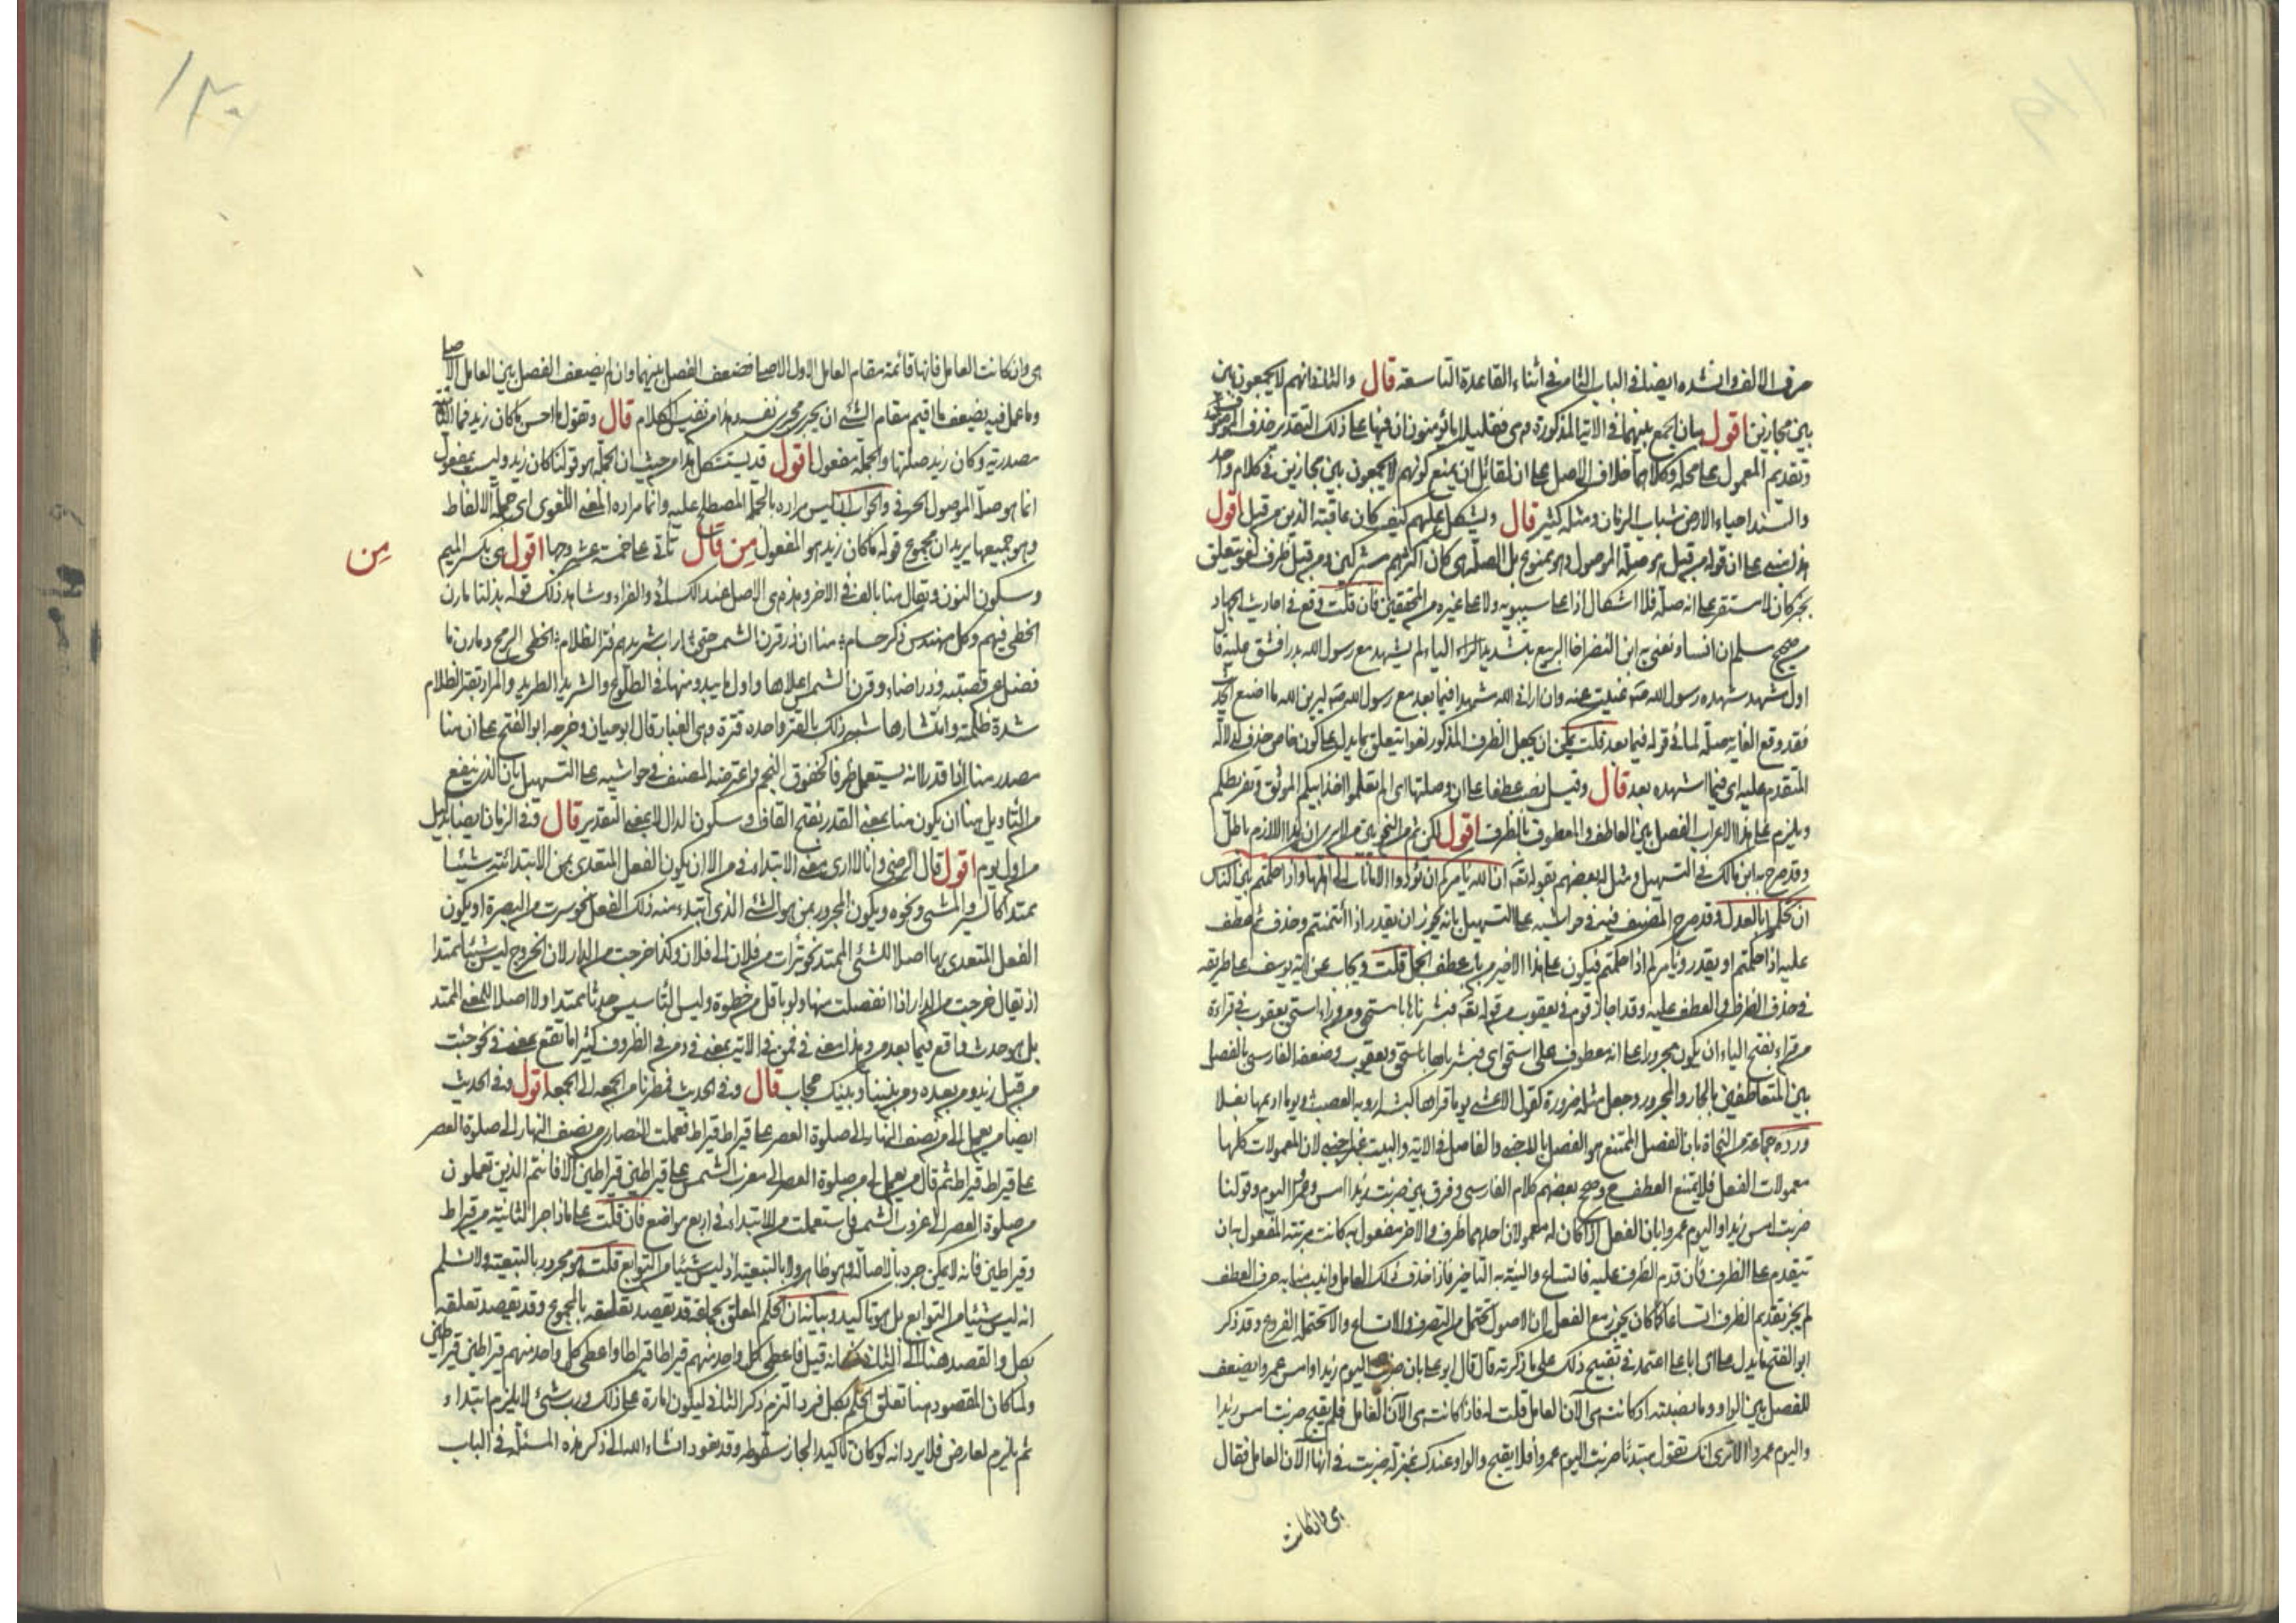 حرف الالف وانشده ايضا في الباب الثامن في اثناء القاعدة التاسعة قال والثاني انهم لا يجمعون بين
بين مجازين اقول بيان الجمع بينهما في الاية المذكورة وهي فقليلا ما يؤمنون ان فيها على ذلك التقدير حذف الموصوف
وتقديم المعمول على محله وكلاهما خلاف الاصل على ان لقائل ان يمنع كونهم لا يجمعون بين مجازين في كلام واحد
والسند احياء الارض شباب الزمان ومثله كثير قال ويشكل عليهم كيف كان عاقبة الذين من قبل اقول
هذا مبني على ان قوله من قبل هو صلة الموصول وهو ممنوع بل الصلة هي كان اكثرهم مشركين ومن قبل ظرف لغو متعلق
بخبر كان لا مستقر على انه صلة فلا اشكال اذا على سيبويه ولا على غيره من المحققين فان قلت وقع في احاديث الجهاد
من صحيح مسلم ان انسا ونعني به ابن النضر اخا الربيع بتشديد الراء الياء لم يشهد مع رسول الله بدرا فشق عليه قال
اول مشهد شهده رسول الله صه غيبت عنه وان اراني الله مشهدا فيما بعد مع رسول الله صه ليرين الله ما اصنع الحديث
فقد وقع الغاية صلة لما في قوله فيما بعد قلت يمكن ان يجعل الظرف المذكور لغوا متعلق بما يدل على كون خاص حذف لدلالة
المتقدم عليه اي فيما اشهده بعد قال وقيل نصب عطفا على ان وصلتها اي الم تعلموا اخذ ابيكم الموثق وتفريطكم
ويلزم على هذا الاعراب الفصل بين العاطف والمعطوف بالظرف اقول لكن ثم من النحويين من لا يرى ان هذا اللازم باطل
وقد صرح به ابن مالك في التسهيل ومثل له بعضهم بقوله تعه ان الله يامركم ان تؤدوا الامانات الى اهلها واذا حكمتم بين الناس
ان تحكموا بالعدل وقد صرح المصنف فيه في حواشيه على التسهيل بانه يجوز ان يقدر اذا أتمنتم وحذف ثم عطف
عليه اذا حكمتم او يقدر ويامركم اذا حكمتم فيكون على هذا الاخير من باب عطف الجمل قلت ويجاب عن اية يوسف على طريقه
في حذف الظرف والعطف عليه وقد اجاز قوم في يعقوب من قوله تعه فبشرناها باسحق ومن وراء اسحق يعقوب في قراءة
من قراء بفتح الياء ان يكون مجرورا على انه معطوف على اسحق اي فبشرناها باسحق ويعقوب وضعفه الفارسي بالفصل
بين المتعاطفين بالجار والمجرور وجعل مثله ضرورة كقول الاعشى يوما تراها كشبه اردية العصب ويوما اديمها نغلا
ورده جماعة من النحاة بان الفصل الممتنع هو الفصل بالاجنبي والفاصل في الاية والبيت غير اجنبي لان المعمولات كلها
معمولات الفعل فلا يمتنع العطف ح وصحح بعضهم كلام الفارسي وفرق بين ضربت زيدا امس وعمرا اليوم وقولنا
ضربت امس زيدا واليوم عمروا بان الفعل اذا كان له معمولان احدهما ظرف والاخر مفعول به كانت مرتبة المفعول به ان
تتقدم على الظرف فان قدم الظرف عليه فاتساع والنية به التاخير فاذا حذف ذلك العامل وانيب منابه حرف العطف
لم يجز تقديم الظرف اتساعا كما كان يجوز مع الفعل لان الاصول تحتمل من التصرف والاتساع ما لا تحتمله الفروع وقد ذكر
ابو الفتح ما يدل على ان ابا علي اعتمد في تقبيح ذلك على ما ذكرته قال قال ابو علي بان ضربت اليوم زيدا وامس عمروا يضعف
للفصل بين الواو وما نصبته اذ كانت هي الآن العامل قلت له فاذا كانت هي الآن العامل فلم يقبح ضربت امس زيدا
واليوم عمروا الا ترى انك تقول مبتدئا ضربت اليوم عمروا فلا يقبح والواو عندك بمنزلة ضربت في انها الآن العامل فقال
هي وان كانت
هي وان كانت العامل فانها قائمة مقام العامل الاول الاصلي فضعف الفصل بينهما وان لم يضعف الفصل بين العامل الاصلي
وما عمل فيه يضعف ما اقيم مقام الشئ ان يجري مجرى نفسه وهذا من نفيس الكلام قال وتقول ما احسن ما كان زيد فما الثانية
مصدرية وكان زيد صلتها والجملة مفعول اقول قد يستشكل هذا من حيث ان الجملة هو قولنا كان زيد وليست بمفعول
انما هو صلة الموصول الحرفي والجواب انه ليس مراده بالجملة المصطلح عليه وانما مراده المعنى اللغوي اي جملة الالفاظ
وهو جميعها يريد ان مجموع قوله ما كان زيد هو المفعول من قال تأتي على خمسة عشر وجها اقول هي بكسر الميم
من
وسكون النون ويقال منا بالف في الاخر وهذه هي الاصل عند الكسائي والفراء وشاهد ذلك قوله بذلنا مارن
الخطي فيهم وكل مهند ذكر حسام منا ان ذر قرن الشمس حتى اراب شريدهم فتر الظلام الخطي الرمح ومارن ما
فضل عن قصبته وذر اضاء وقرن الشمس اعلاها واول ما يبدو منها في الطلوع والشريد الطريد والمراد بقتر الظلام
شدة ظلمته وانتشارها شبه ذلك بالقتر واحده قترة وهي الغبار قال ابو حيان وخرجه ابو الفتح على ان منا
مصدر منا اذا قدر الا انه يستعمل ظرفا كخفوق النجم واعترضه المصنف في حواشيه على التسهيل بان الذي ينفع
من التاويل هنا ان يكون منا بمعنى القدر بفتح القاف وسكون الدال لا بمعنى التقدير قال وفي الزمان ايضا بدليل
من اول يوم اقول قال الرضي وانا لا ارى معنى الابتداء في من الا ان يكون الفعل المتعدى بمن الابتدائية شيئا
ممتدا كالسير والمشي ونحوه ويكون المجرور بمن هو الشئ الذي ابتدء منه ذلك الفعل نحو سرت من البصرة او يكون
الفعل المتعدى بها اصلا للشئ الممتد نحو تبرأت من فلان الى فلان وكذا خرجت من الدار لان الخروج ليس شيئا ممتدا
اذ يقال خرجت من الدار اذا انفصلت منها ولو باقل من خطوة وليس التأسيس حدثا ممتدا ولا اصلا للمعنى الممتد
بل هو حدث واقع فيما بعد من وهذا معنى في فمن في الاية بمعنى في ومن في الظروف كثيرا ما تقع بمعنى في نحو جئت
من قبل زيد ومن بعده ومن بيننا وبينك حجاب قال وفي الحديث فمطرنا من الجمعة الى الجمعة اقول وفي الحديث
ايضا من يعمل لي من نصف النهار الى صلوة العصر على قيراط قيراط فعملت النصارى من نصف النهار الى صلوة العصر
على قيراط قيراط ثم قال من يعمل لي من صلوة العصر الى مغرب الشمس على قيراطين قيراطين الا فانتم الذين تعملون
من صلوة العصر الى غروب الشمس فاستعملت من للابتداء في اربع مواضع فان قلت على ماذا جر الثانية من قيراط
وقيراطين فانه لا يمكن جره بالاصالة وهو ظاهر ولا بالتبعية اذ ليس شيئا من التوابع قلت هو مجرور بالتبعية ولا نسلم
انه ليس شيئا من التوابع بل هو تاكيد وبيانه ان الحكم المعلق بجماعة قد يقصد تعليقه بالمجموع وقد يقصد تعلقه
بكل والقصد هنا الى الثاني فكانه قيل فاعطى كل واحد منهم قيراطا قيراطا واعطى كل واحد منهم قيراطين قيراطين
ولما كان المقصود هنا تعلق الحكم بكل فرد التزم ذكر الثاني ليكون امارة على ذلك ورب شئ لا يلزم ابتداء و
ثم يلزم لعارض فلا يرد انه لو كان تاكيدا لجاز سقوطه وقد نعود انشاء الله الى ذكر هذه المسئلة في الباب